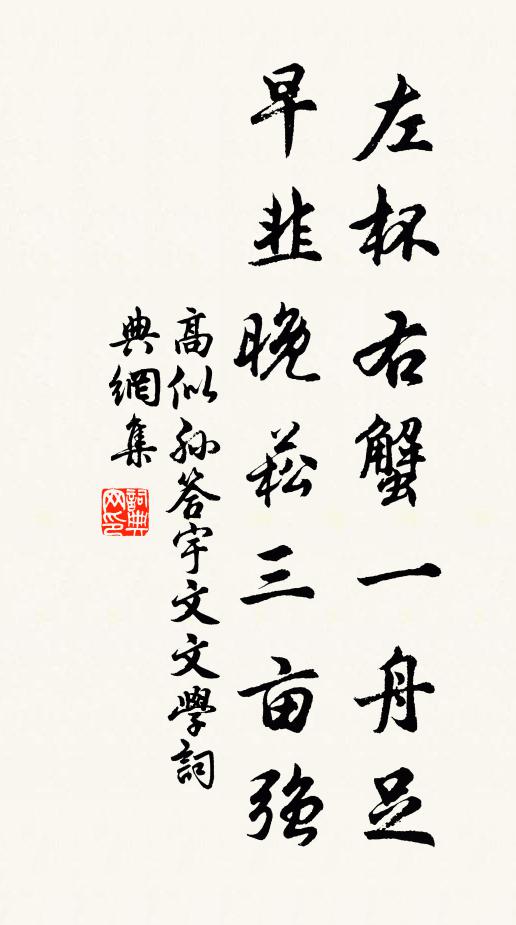 左杯右蟹一舟足
早韭晚菘三亩強
高似孙答宇文文學詞
典網集
詞典网印